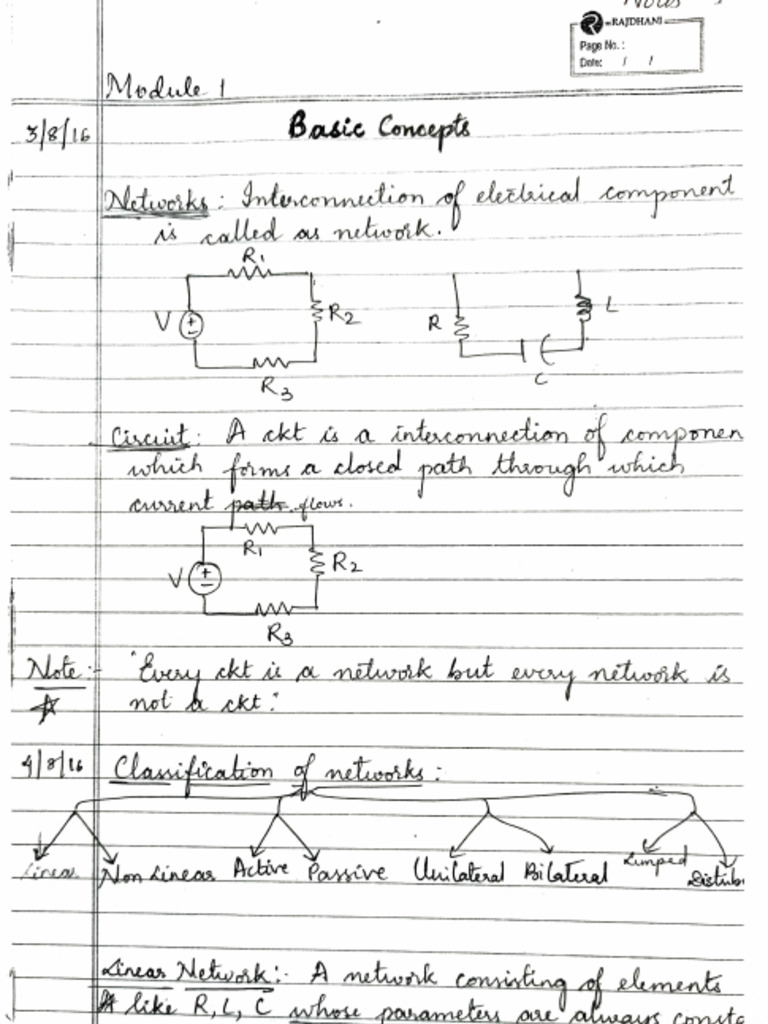 Notes
RAJDHANI
Page No. :
Date: / /
Module 1
3/8/16
Basic Concepts
Networks : Interconnection of electrical component
is called as network.
R1
V
R2
R3
R
L
C
Circuit : A ckt is a interconnection of componen
which forms a closed path through which
current path flows.
R1
V
R2
R3
Note :- "Every ckt is a network but every network is
not a ckt."
4/8/16
Classification of networks :
Linear Non Linear Active Passive Unilateral Bilateral Lumped Distrib
Linear Network :- A network consisting of elements
like R, L, C whose parameters are always consta